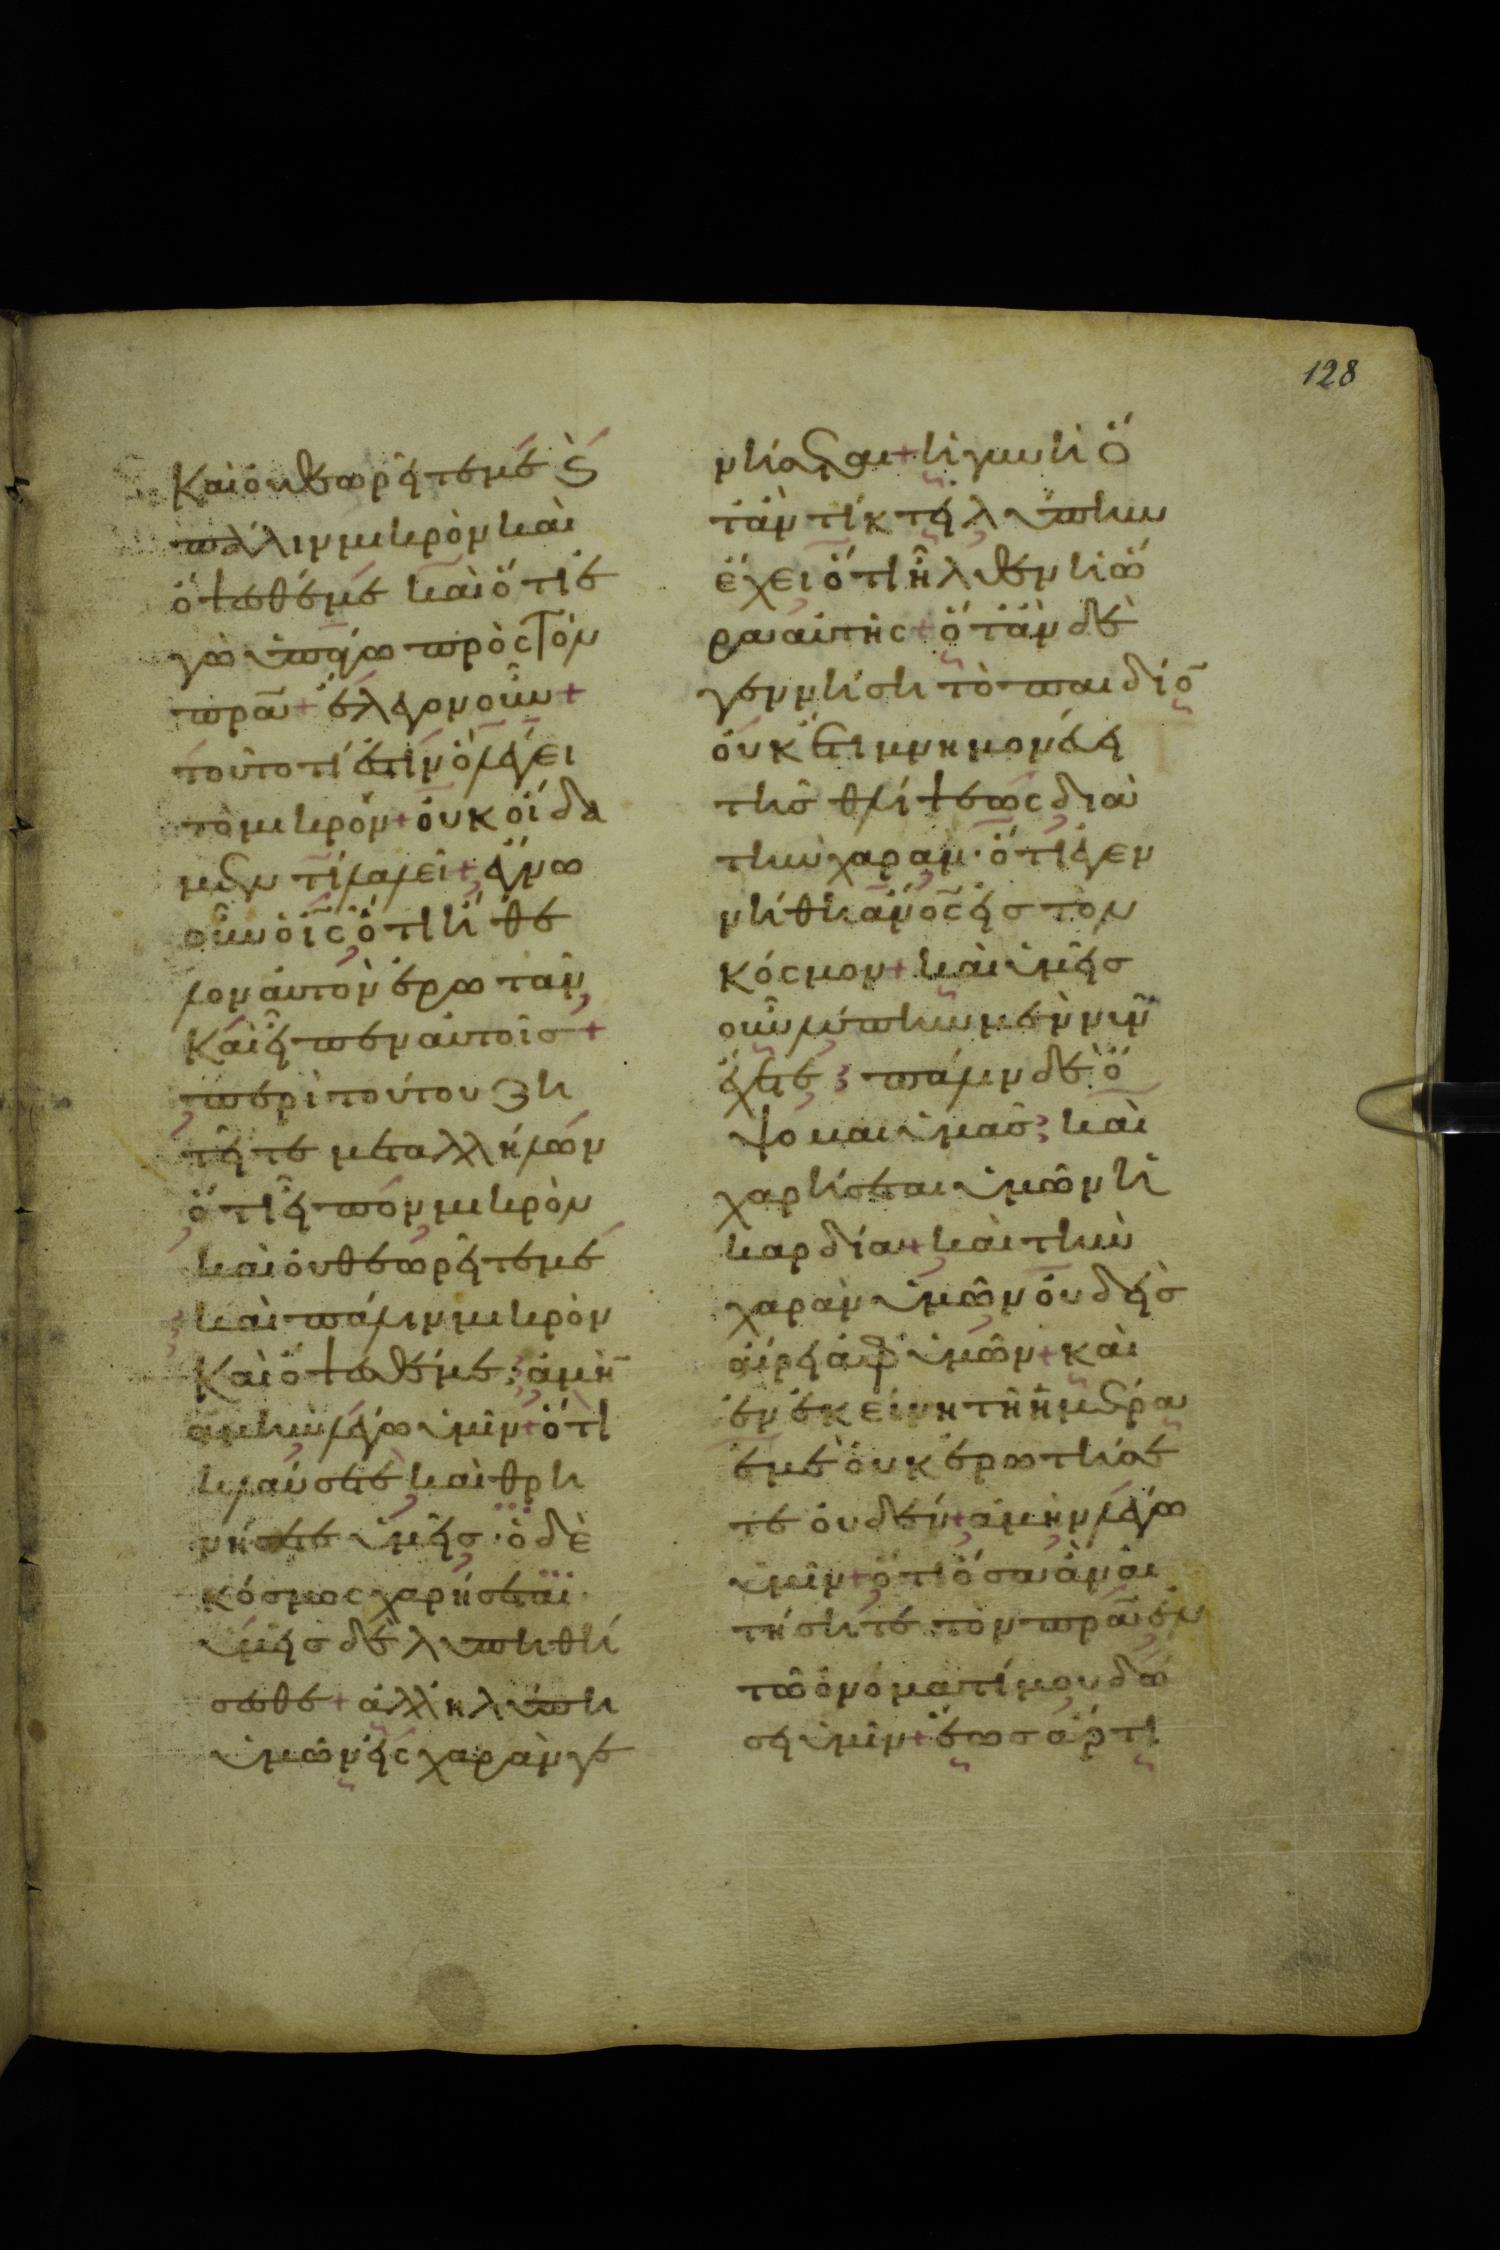 128
καὶ οὐ θεωρεῖτέ με ϛ
πάλιν μικρὸν καὶ
ὄψεσθέ με καὶ ὅτι ἐ
γὼ ὑπάγω πρὸς τὸν
πρ̅α̅ + ἔλεγον οὖν +
τοῦτο τί ἐστιν ὃ λέγει
τὸ μικρόν + οὐκ οἴδα
μεν τί λαλεῖ + ἔγνω
οὖν ὁ ι̅ς̅ ὅτι ἤθε
λον αὐτὸν ἐρωτᾶν
καὶ εἶπεν αὐτοῖς +
περὶ τούτου ζη
τεῖτε μετ αλλήλων
ὅτι εἶπον μικρὸν
καὶ οὐ θεωρεῖτέ με
καὶ πάλιν μικρὸν
καὶ ὄψεσθέ με ; ἀμὴν
ἀμὴν λέγω ὑμῖν + ὅτι
κλαύσετε καὶ θρη
νήσετε ὑμεῖς · ὁ δὲ
κόσμος χαρήσεται ·
ὑμεῖς δὲ λυπηθή
σεσθε + ἀλλ ἡ λύπη
ὑμῶν εἰς χαρὰν γε
νήσεται + ἡ γυνὴ ὅ
τὰν τίκτει λύπην
ἔχει ὅτι ἦλθεν ἡ ὥ
ρα αὐτῆς + ὅτὰν δὲ
γεννήση τὸ παιδίο̅
οὐκέτι μνημονεύει
τῆς θλίψεως διὰ
τὴν χαρὰν · ὅτι ἐγεν
νήθη ἄνο̅ς̅ εἰς τὸν
κόσμον + καὶ ὑμεῖς
οὖν λύπην μὲν νῦν
ἔχετε ; πάλιν δὲ ὄ
ψομαι ὑμᾶς ; καὶ
χαρήσεται ὑμῶν ἡ
καρδία + καὶ τὴν
χαρὰν ὑμῶν οὐδεὶς
αἴρει ἀφ ὑμῶν + καὶ
ἐν ἐκείνη τῆ ἡμέρα
ἐμὲ οὐκ ἐρωτήσε
τε οὐδέν + ἀμὴν λέγω
ὑμῖν + ὅτι ὅσα ἀν αἰ
τήσητε τὸν πρ̅α̅ ἐν
τῶ ὀνόματί μου δώ
σει ὑμῖν + ἕως ἄρτι